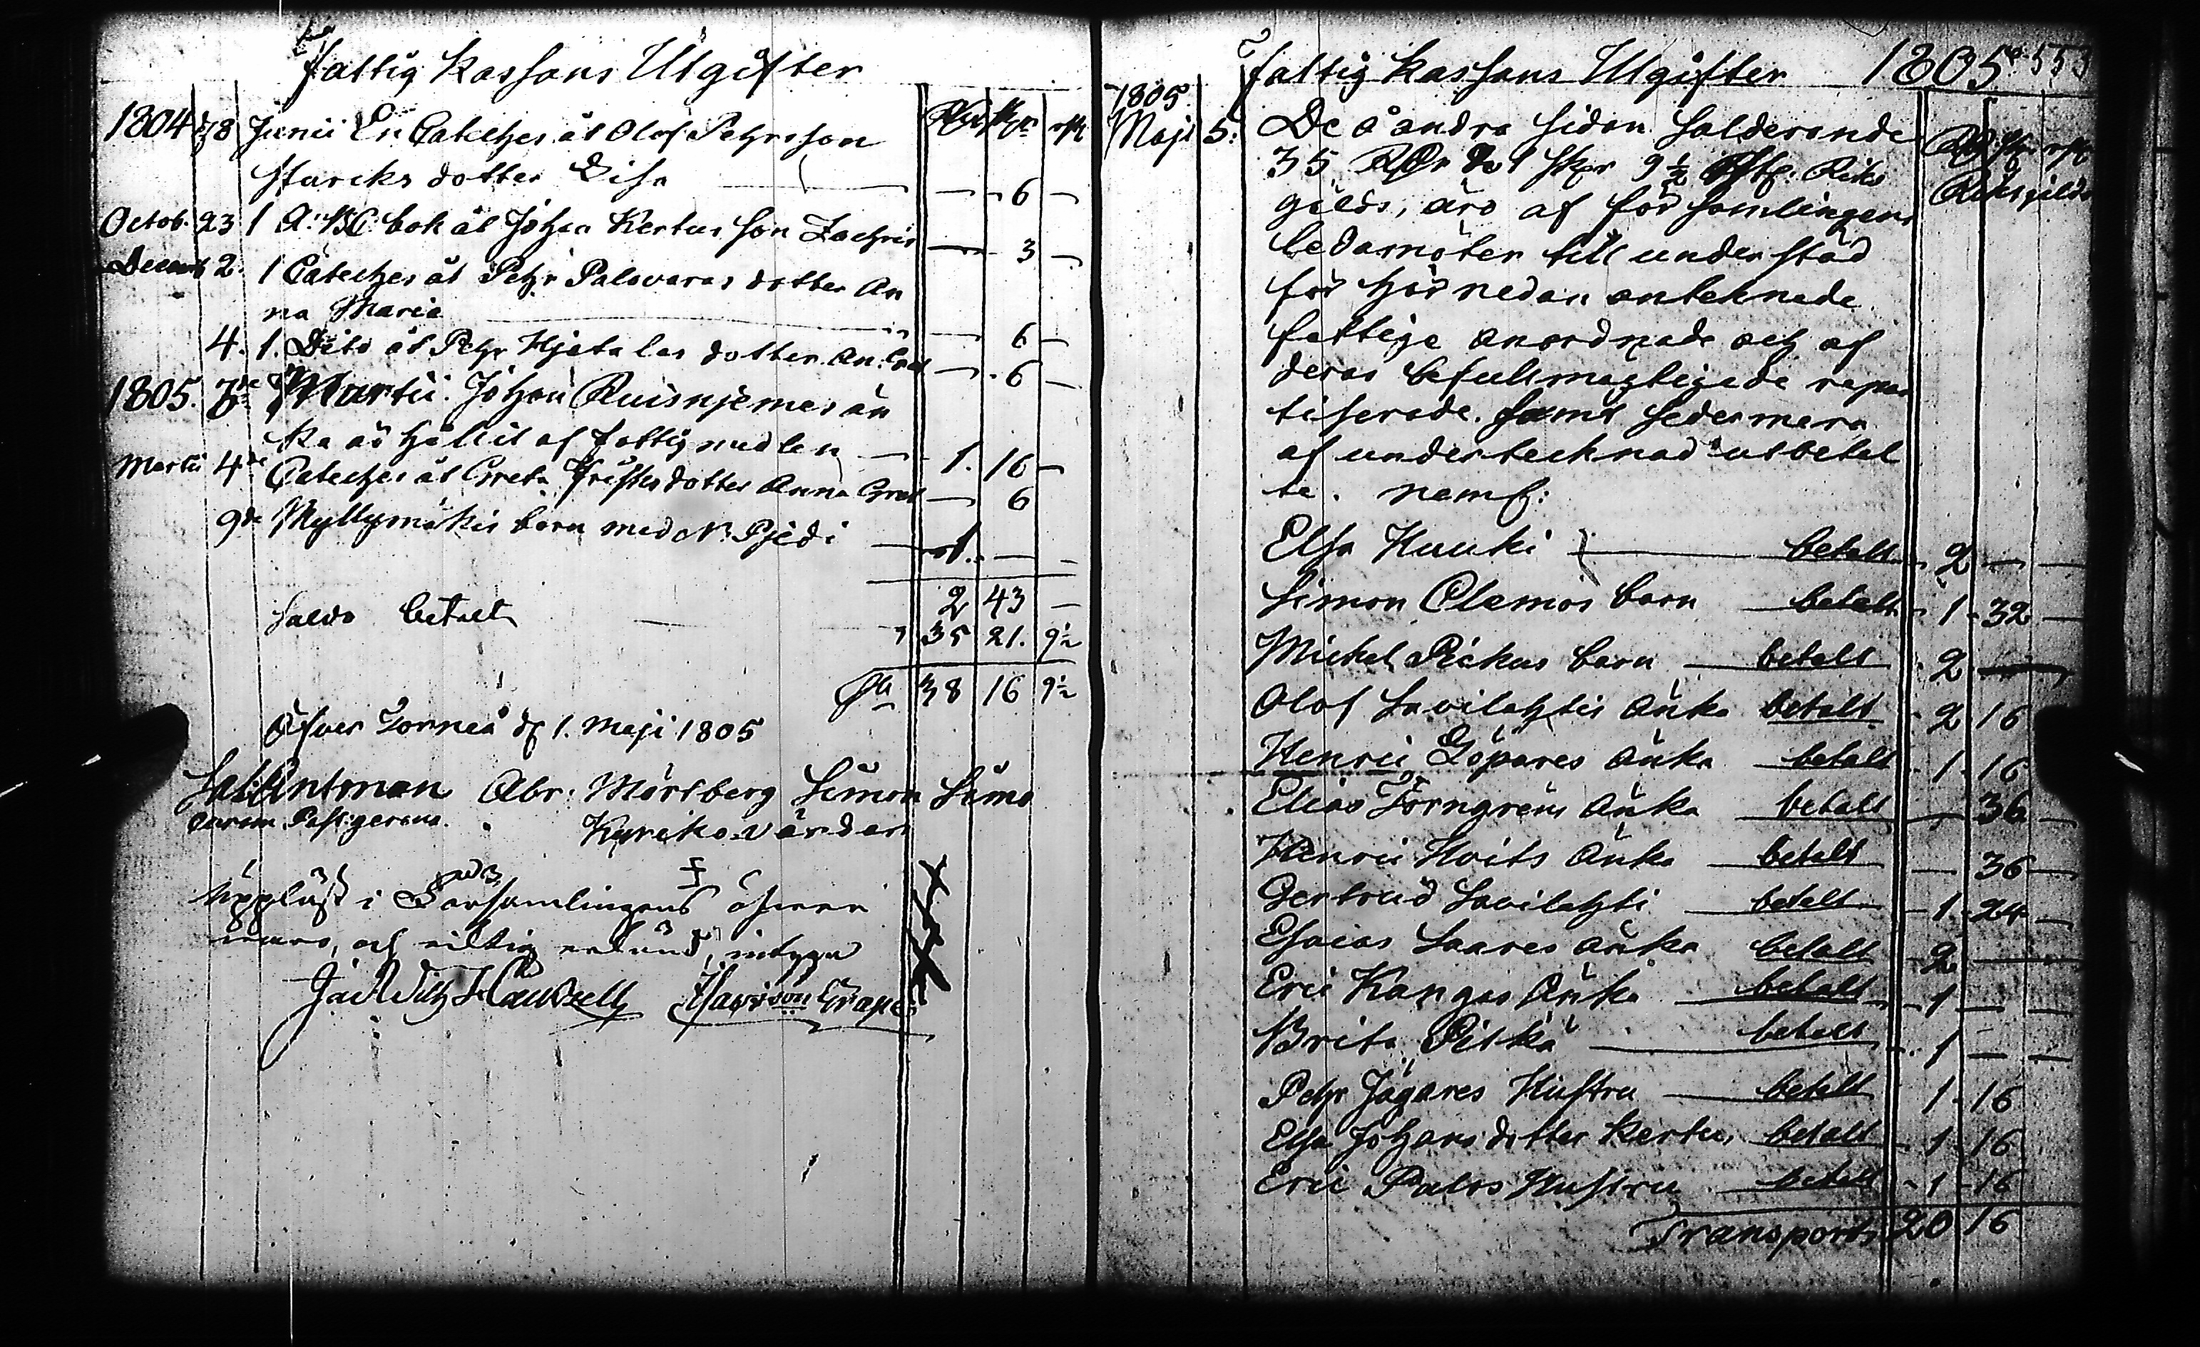 Fattig Kassans Utgifter
1804 d 8 Junii En Cateches åt Olof Pehrsson
Starcks dotter Lisa — — 6 —
Octob. 23 1 A.B.C. bok åt Johan Kertus son Zachris — 3 —
Decemb 2. 1 Cateches åt Pehr Palovaras dotter An
na Maria — 6 —
4. 1. Dito åt Pehr Hjetalas dotter An: Gret — 6 —
1805. Martii. Johan Ruisniemes än
ka åt hjelp af fattig medlen — 1. 16 —
Martii 4de Cateches åt Greta dotter Anna Gret — 6
9de Myllymäkis barn med N. Pjedi — 1. — —
2 43 —
Saldo betalt — 35 21. 9½
38 16 9½
Öfver Torneå d 1. Maji 1805
Sal. Antman Abr: Mörtberg Simon Simo
Kyrko värdar
uppläst i Församlingens öfwer
waro, och riktig erkänd, intyga
Hackzell Grape
Fattig Kassans Utgifter 1805. 553
1805
Maji 5. De å andra sidan Salderande
35 RDr 21 skr 9½ Riks
gälds, äro af församlingens
ledamöter till understöd
för här nedan anteknade
fattige anordnade och af
deras befullmägtigade repar
tiserade. samt sedermera
af undertecknad utbetal
te. nemf:
Riksgilds
Elsa Hauki — betalt 2 — —
Simon Clemos barn — betalt 1 - 32 —
Michel Piekas barn — betalt 2 —
Olof Lavilahtis änka betalt 2 16
Henric Göpares änka — betalt 1 - 16
Elias Törngrens änka — betalt — 36 —
Henric Hoits änka — betalt — 36 —
Gertrud Lavilahti — betalt 1 - 24 —
Esaias Laares änka betalt 2 —
Eric Kangas änka — betalt 1 —
Brita Pitkä — betalt 1 — —
Pehr Jägares Hustru — betalt 1 - 16
Elsa Johansdotter Kertu, betalt 1 - 16
Eric Palos Hustru — betalt 1 - 16
Transport 20 16